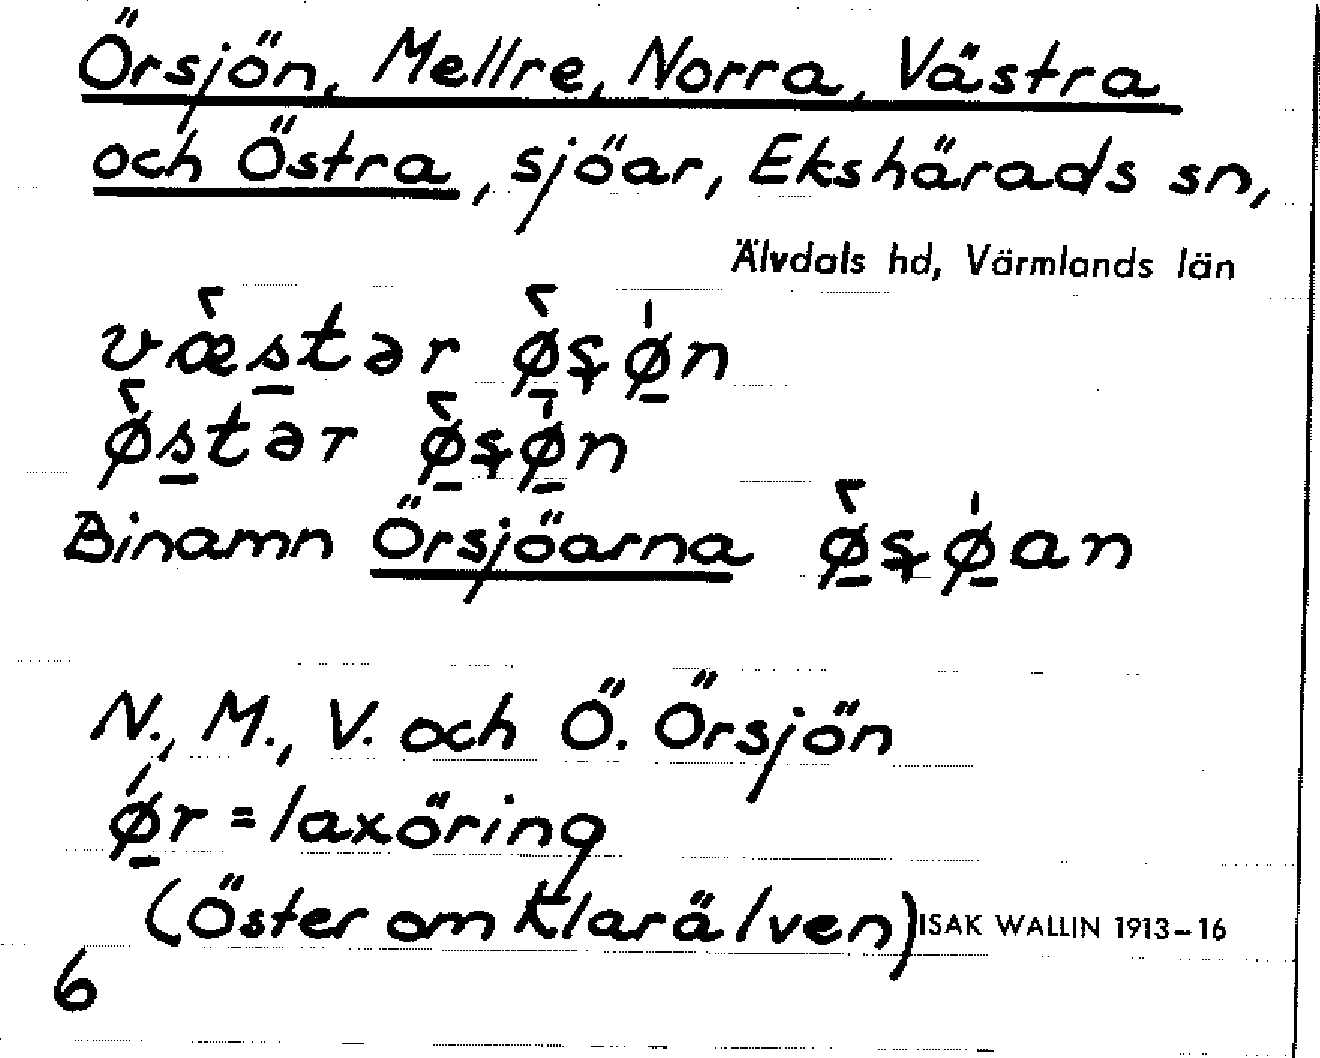 Örsjön, Mellre, Norra, Västra
och Östra, sjöar, Ekshärads sn,
Älvdals hd, Värmlands län
væ̀s̲tər ø̲̀ʂø̲̍n
ø̀s̲tər ø̲̀ʂø̲̍n
Binamn Örsjöarna ø̲̀ʂø̲̍an
N., M., V. och Ö. Örsjön
ǿ̲r = laxöring
(Öster om Klarälven) ISAK WALLIN 1913–16
6